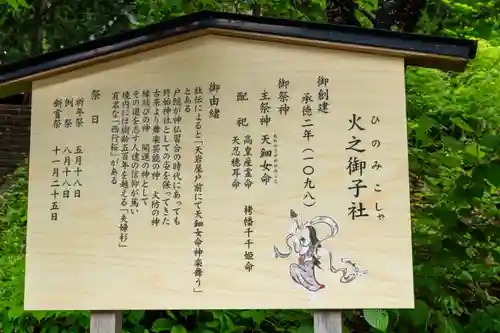 火之御子社
ひのみこしゃ
御創建
承徳二年（一〇九八）
御祭神
主祭神 天鈿女命
配祀 高皇産霊命 栲幡千千姫命
天忍穂耳命
御由緒
社伝によると「天岩屋戸前にて天鈿女命神楽舞う」
とある
戸隠が神仏習合の時代にあっても
終始神社としての姿を保ってきた
古来より舞楽芸能の神 火防の神
縁結びの神 開運の神として
その道を志す人達の信仰が篤い
境内には樹齢五百年を越える「夫婦杉」
有名な「西行桜」がある
祭日
祈年祭 五月十八日
例祭 八月十八日
新嘗祭 十一月二十五日